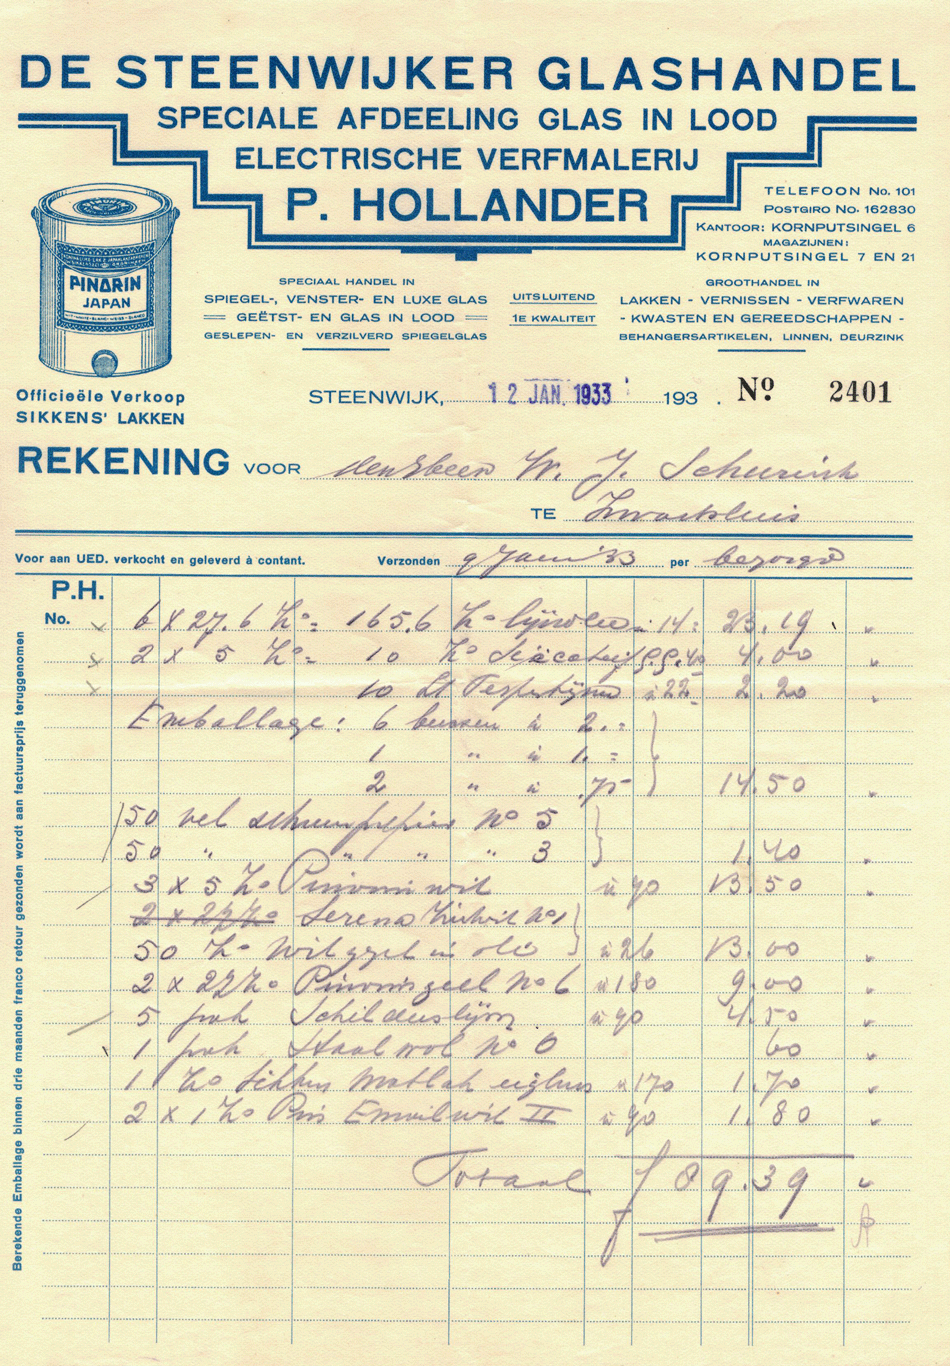 DE STEENWIJKER GLASHANDEL
SPECIALE AFDEELING GLAS IN LOOD
ELECTRISCHE VERFMALERIJ
P. HOLLANDER
TELEFOON No. 101
POSTGIRO No. 162830
KANTOOR: KORNPUTSINGEL 6
MAGAZIJNEN:
KORNPUTSINGEL 7 EN 21
PINORIN
JAPAN
Officieële Verkoop
SIKKENS' LAKKEN
SPECIAAL HANDEL IN
SPIEGEL-, VENSTER- EN LUXE GLAS
GEËTST- EN GLAS IN LOOD
GESLEPEN- EN VERZILVERD SPIEGELGLAS
UITSLUITEND
1E KWALITEIT
GROOTHANDEL IN
LAKKEN - VERNISSEN - VERFWAREN
- KWASTEN EN GEREEDSCHAPPEN -
BEHANGERSARTIKELEN, LINNEN, DEURZINK
STEENWIJK, 12 JAN. 1933 193 . No. 2401
REKENING VOOR den Heer W. J. Scheurink
TE Zwartsluis
Voor aan UED. verkocht en geleverd à contant. Verzonden 9 Jan '33 per bezorgd
P.H.
No.
6 x 27.6 Ko = 165.6 Ko lijnolie à 14 = 23.19 "
2 x 5 Ko = 10 Ko 4.00 "
10 Lt Terpentijn à 22 2.20 "
Emballage: 6 bussen à 2.=
1 " à 1.=
2 " à .75 14.50 "
50 vel schuurpapier No 5
50 " " " " 3 1.40 "
3 x 5 Ko wit à 90 13.50 "
2 x 27 Ko Serena Zinkwit No 1
50 Ko wit in olie à 26 13.00 "
2 x 2½ Ko geel No 6 à 180 9.00 "
5 pak Schilderslijm à 90 4.50 "
1 pak Staalwol No 0 60 "
1 Ko Sikkens Matlak à 170 1.70 "
2 x 1 Ko Pin Emailwit II à 90 1.80 "
Totaal f 89.39 "
Berekende Emballage binnen drie maanden franco retour gezonden wordt aan factuursprijs teruggenomen